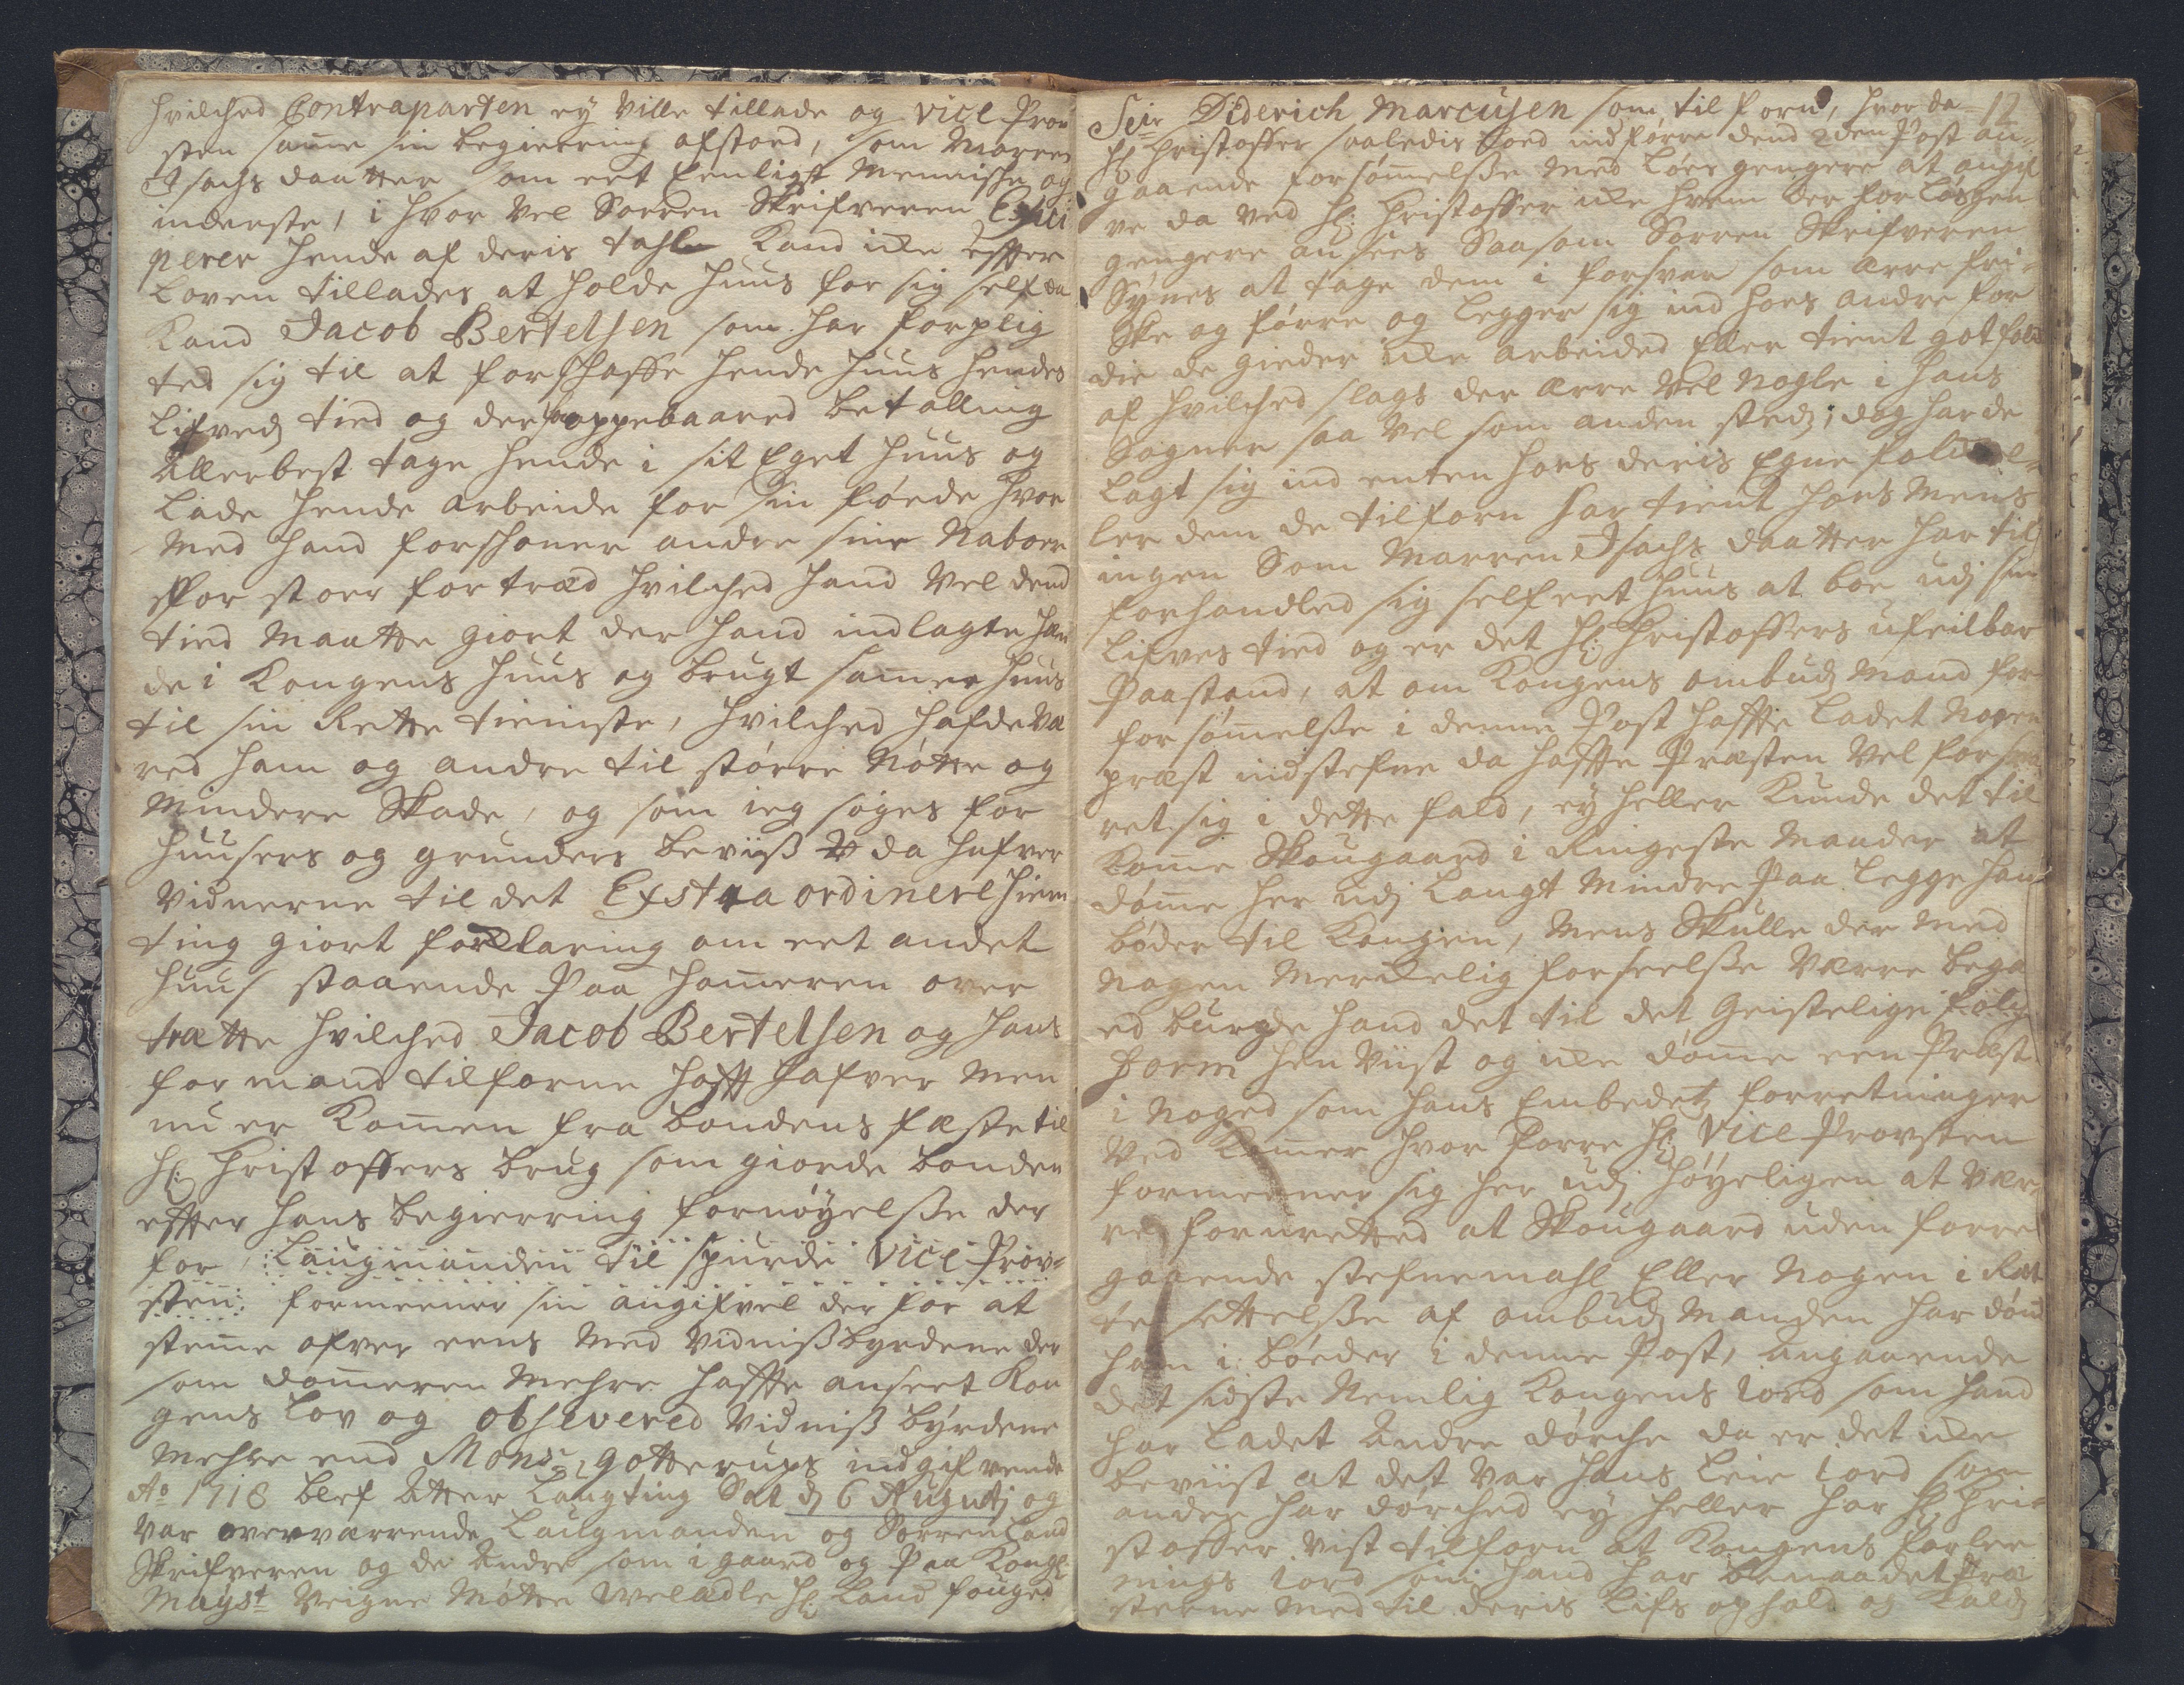 hvilched Contraparten ey ville tillade og vice Prov
sten samme sin begiering afstoed, som Marren
Isachs daatter som eet Eenligt Menniske og
inderste, i hvor vel Sorren Skrifveren Exci
perer hende af deris tahl Kand icke Effter
Loven tillades at holde huus for sig self da
Kand Jacob Bertelsen som har forplig
ted sig til at forskaffe hende huus hendes
Lifvedz tied og derfor oppebaared betalling
Allerbest tage hende i sit Eget huus og
Lade hende arbeide for sin føede hvor
Med hand forskoner andre sine Naboer
for stoer fortræd hvilched hand Vel dend
tied Maatte giort der hand indlagte hen
de i Kongens huus og brugt samme huus
til sin Rette tieniste, hvilched hafde væ
red ham og andre til større Nøtte og
Mindere Skade, og som ieg søges for
huusers og grunders beviiß da hafver
vidnerne til det Exstraordinere hiem
ting giort forklaring om eet andet
huus staaende Paa hammeren over
trætte hvilched Jacob Bertelsen og hans
formand tilforne hafft hafver Men
nu er Kommen fra bondens fæste til
Hr: Christoffers brug som giorde bonden
effter hans begierring fornøyelße der
for :Laugmanden til spurde vice Prov-
sten: formeener sin angifvel der for at
stemme ofver eens med vidnißbyrdene der
som dommeren Mehre haffte anseet Kon
gens Lov og observered vidniß byrdene
Mehre end Monsr Gotterups indgifvende
Ao 1718 blef Atter Laugting Sat d 6 Augustj og
var overværrende Laugmanden og Sorren Land
Skrifveren og de Andre som i gaard og Paa Kongl
Mayst Veigne Møtte Welædle Hr: Land fouged
Seir Diderich Marcusen som til forn, hvor da 12
Hr Christoffer saaledis loed indførre dend 2den Post an-
gaaende forsømmelße med Løes gengere at angif
ve da ved Hr: Christoffer icke hvem der for Løsgen
gengere ansees Saasom Sorren Skrifveren
Synes at tage dem i forsvar som ærre fri-
ske og førre og Legger sig ind hoes andre for
die de gieder icke arbeided Eller tient got folk
af hvilched slags der ærre Vel Nogle i hans
Sogner saa Vel som anden stedz, dog har de
Lagt sig ind enten hoes deris Egne folk El-
ler dem de tilforn har tient hoes Mens
ingen Som Marren Isachs daatter har til
forhandled sig self eet huus at boe udj sin
Lifves tied og er det Hr: Christoffers ufeilbar
Paastand, at om Kongens ombudz Mand for
forsømmelße i denne Post haffte Ladet Nogen
præst indstefne da haffte Præsten Vel forsva
ret sig i dette fald, ey heller Kunde det til
Komme Skougaard i Ringeste Maader at
dømme her udj Langt Mindre Paa Legge ham
bøder til Kongen, Mens Skulle der med
Nogen Merckelig forseelße Værre bega
ed burde hand det til det Geistelige
forum hen viist og icke dømme een Præst
i Noged som hans Embedetz forretninger
Ved Kommer hvor forre Hr: Vice Provsten
formeener sig her udj høyeligen at Vær-
re fornetted at Skougaard uden forre
gaaende stefnemahl Eller Nogen i Ret
te settelße af ombudz Manden har dømt
ham i bøeder i denne Post, angaaende
det sidste Nemlig Kongens iord som hand
har Ladet Andre dørche da er det icke
beviist at det var hans Leie iord som
andre har dørched ey heller har Hr: Chri-
stoffer vist tilforn at Kongens forlee
nings iord som hand har benaadet Præ
sterne med til deris Lifs ophold og Kaldz